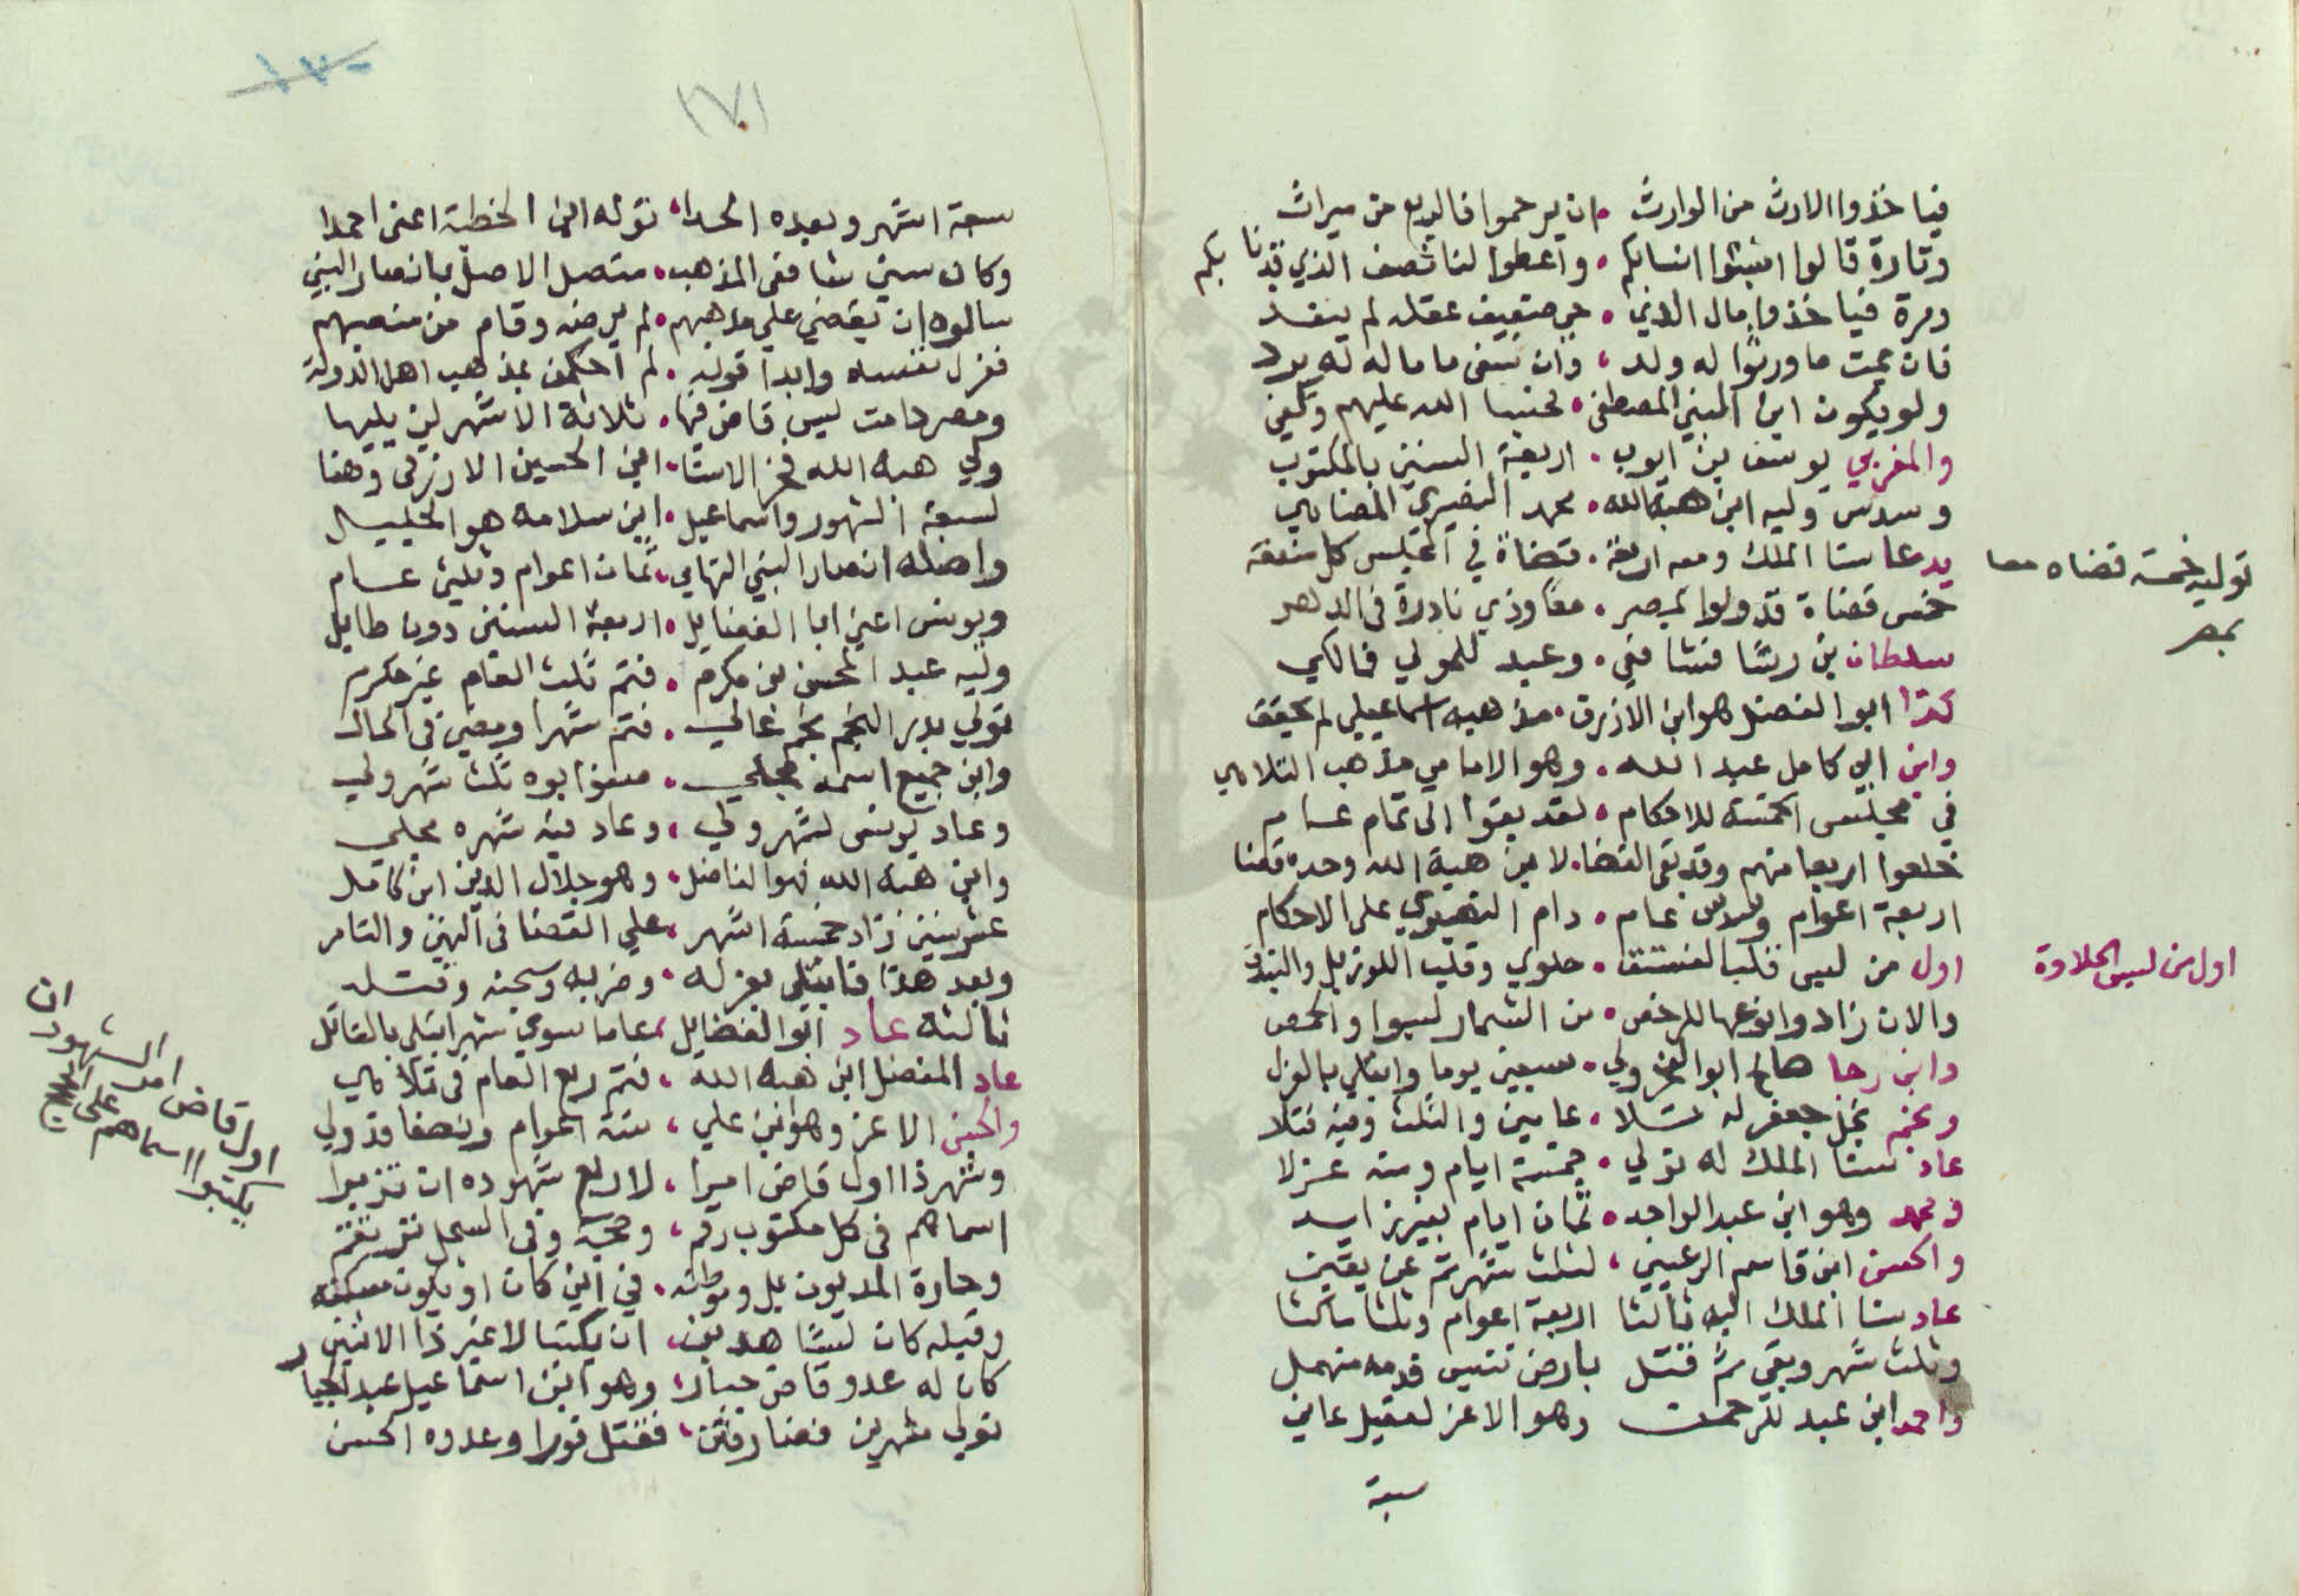 فياخذوا الارث من الوارث • ان يرحموا فالربع من ميراث
وتارة قالوا اثبتوا انسابكم • واعطوا لنا نصف الذي قدنا بكم
ومرة فياخذوا مال الدني • حي ضعيف عقله لم ينفد
فان يمت ما ورثوا له ولد ، وان يبقى ماماله له يرد
ولو يكون ابن النبي المصطفى • لحسبنا الله عليهم وكفى
والمغربي يوسف بن ايوب • اربعة السنين بالمكتوب
وسدس وليه ابن هبة الله • محمد النصيري المضاهي
يدعا سنا الملك ومعه اربعة • قضاة في المجلس كل منفعة
توليه خمسة قضاه معا
بمصر
خمس قضاة قد ولوا بمصر • معا وذي نادرة في الدهر
سلطان بن رشا فشافعي • وعبد للمولي فمالكي
كذا ابو الفضل هو ابن الازرق • مذهبه اسماعيلي لم يحقق
وابن ابي كامل عبد الله • وهو الامامي مذهب التلاهي
في مجلس الخمسة للاحكام • لقد بقوا الى تمام عام
خلعوا اربعا منهم وقد بقي القضا • لابن هبة الله وحده قضا
اربعة اعوام وسدس عام • دام النصيري على الاحكام
اول من لبس قلب الفستق • حلوي وقلب اللوز بل والبندق
اول من لبس الحلاوة
والان زادوا نوعها للرخص • من الشمار لبسوا والحمص
وابن رجا هاج ابو الفخر ولي • سبعين يوما وابتلي بالعزل
ونجم نجل جعفر له تلا • عامين والثلث وفيه قتلا
عاد سنا الملك له تولي • خمسة ايام ومنه عزلا
ومحمد وهو ابن عبد الواحد • ثمان ايام بغير زايد
والحسن ابن قاسم الرعيني ، لثلث شهر تم عن يقين
عاد سنا الملك اليه ثالثا اربعة اعوام وثلثا ماكثا
وثلث شهر وبقي ثم قتل بارض تنيس فدمه منهمل
واحمد ابن عبد للرحمن وهو الاعز لعقيل عاني
سبعة
١٧١
سبعة اشهر وبعده الحدا ، توله ابن الخطية اعني احمدا
وكان سني شافعي المذهب • متصل الاصل بانصار النبي
سالوه ان يقضي علي مذهبهم • لم يرضه وقام من منصبهم
فعزل نفسه وابدا قوله • لم احكمن بمذهب اهل الدولة
ومصر دامت ليس قاض فيها • ثلاثة الاشهر لين يليها
ولي هبة الله فخر الامنا • ابن الحسين الازرقي وهنا
لسبعة الشهور واسماعيل • ابن سلامه هو الجليل
واصله انصار النبي التهامي ، ثمان اعوام وثلثي عام
ويونس اعني ابا الفضايل • اربعة السنين دون طايل
وليه عبد المحسن بن مكرم • فتم ثلث العام غير مكرم
تولي بدر النجم نجم غالي • فتم شهرا ومضى في الحال
وابن جميع اسمه مجلي • معزا بوه ثلث شهر ولي
وعاد يونس لشهر ولي ، وعاد فيه شهره مجلي
وابن هبة الله فهو الفاضل • وهو جلال الدين ابن كامل
عشر سنين زاد خمسة اشهر • علي القضا في النهي والتامر
وبعد هذا فابتلي بعزله • وضربه وسجنه وقتله
ثالثة عاد ابو الفضايل ، عاما سوي شهر ابتلي بالقاتل
عاد المفضل ابن هبة الله ، فتم ربع العام في تلاهي
والحسن الاعز وهو ابن علي ، ستة اعوام ونصفا قد ولي
وشهر ذا اول قاض امرا ، لاربع شهوده ان تزبرا
اول قاض امر الشهود ان
يكتبوا اسماهم علي
اسماهم في كل مكتوب رقم ، وحجة وفي السجل ترتقم
وحارة المديون بل وموطنه • في اين كان او يكون مسكنه
وقبله كان لبشاهدين ، ان يكتبا لا غير ذا الاثنين
كان له عدو قاض جبار ، وهو ابن اسماعيل عبد الجبار
تولي شهرين قضا رفتن ، فقتل فورا وعدوه الحسن